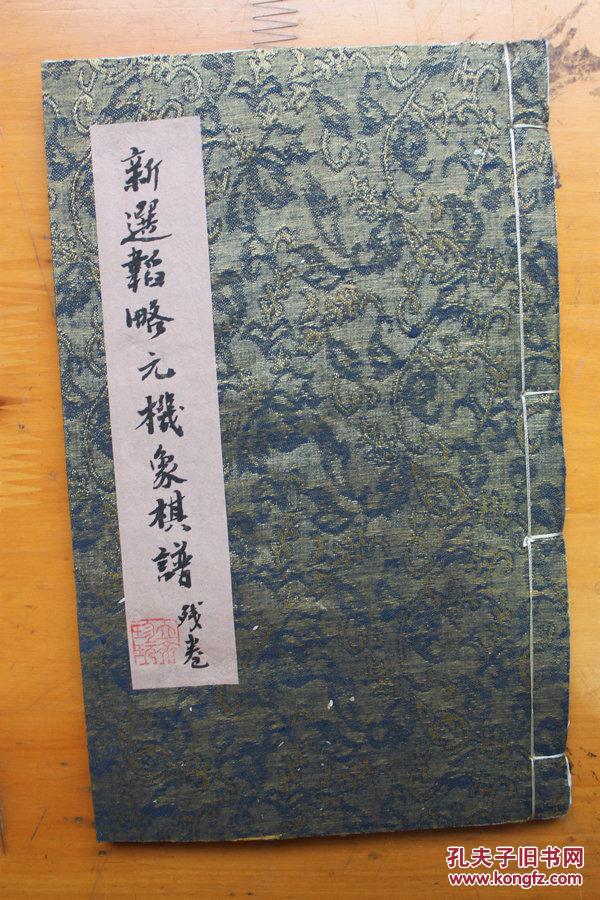 新選韜略元機象棋譜
残卷
孔夫子旧书网
www.kongfz.com